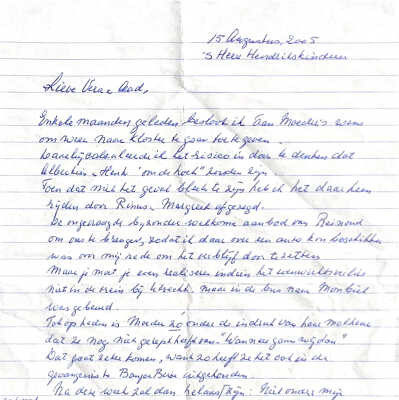 15 Augustus, 2005
's Heer Hendrikskinderen
Lieve Vera
Enkele maanden geleden besloot ik aan Moeder's wens
om weer naar Kloster te gaan toe te geven.
ik het risico in door te denken dat
Albertien + Henk "om de hoek" zouden zijn.
Toen dat niet het geval bleek te zijn heb ik het daarheen
rijden door Rinus + Margreet afgezegd.
De ongevraagde bijzonder welkome aanbod van Reinoud
om ons te brengen, zodat ik daar over een auto kon beschikken
was voor mij rede om het verblijf door te zetten
Maar je moet je even realiseren indien het
niet in de trein bij Utrecht, maar in de bus naar
was gebeurd.
Tot op heden is Moeder zó onder de indruk van
dat ze nog niet heeft van: "Wanneer gaan wij dan"
Dat gaat zeker komen, want zo heeft ze het ook in de
gevangenis te uitgehouden.
Na deze week zal dan helaas Thijn: